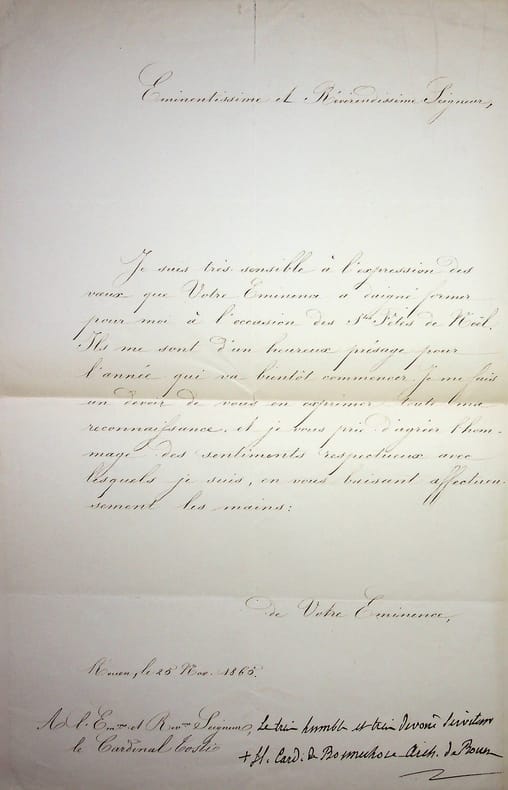 Eminentissime et Révérendissime Seigneur,
Je suis très sensible à l'expression des
vœux que Votre Eminence a daigné former
pour moi à l'occasion des Stes Fêtes de Noël.
Ils me sont d'un heureux présage pour
l'année qui va bientôt commencer. Je me fais
un devoir de vous en exprimer toute ma
reconnaissance, et je vous prie d'agréer l'hom-
mage des sentiments respectueux avec
lesquels je suis, en vous baisant affectueu-
sement les mains:
de Votre Eminence,
Rouen, le 25 Nov. 1865.
A l'Eme et Révme Seigneur,
le Cardinal Tosti
le très humble et très dévoué serviteur
+ H. Card. de Bonnechose Arch. de Rouen